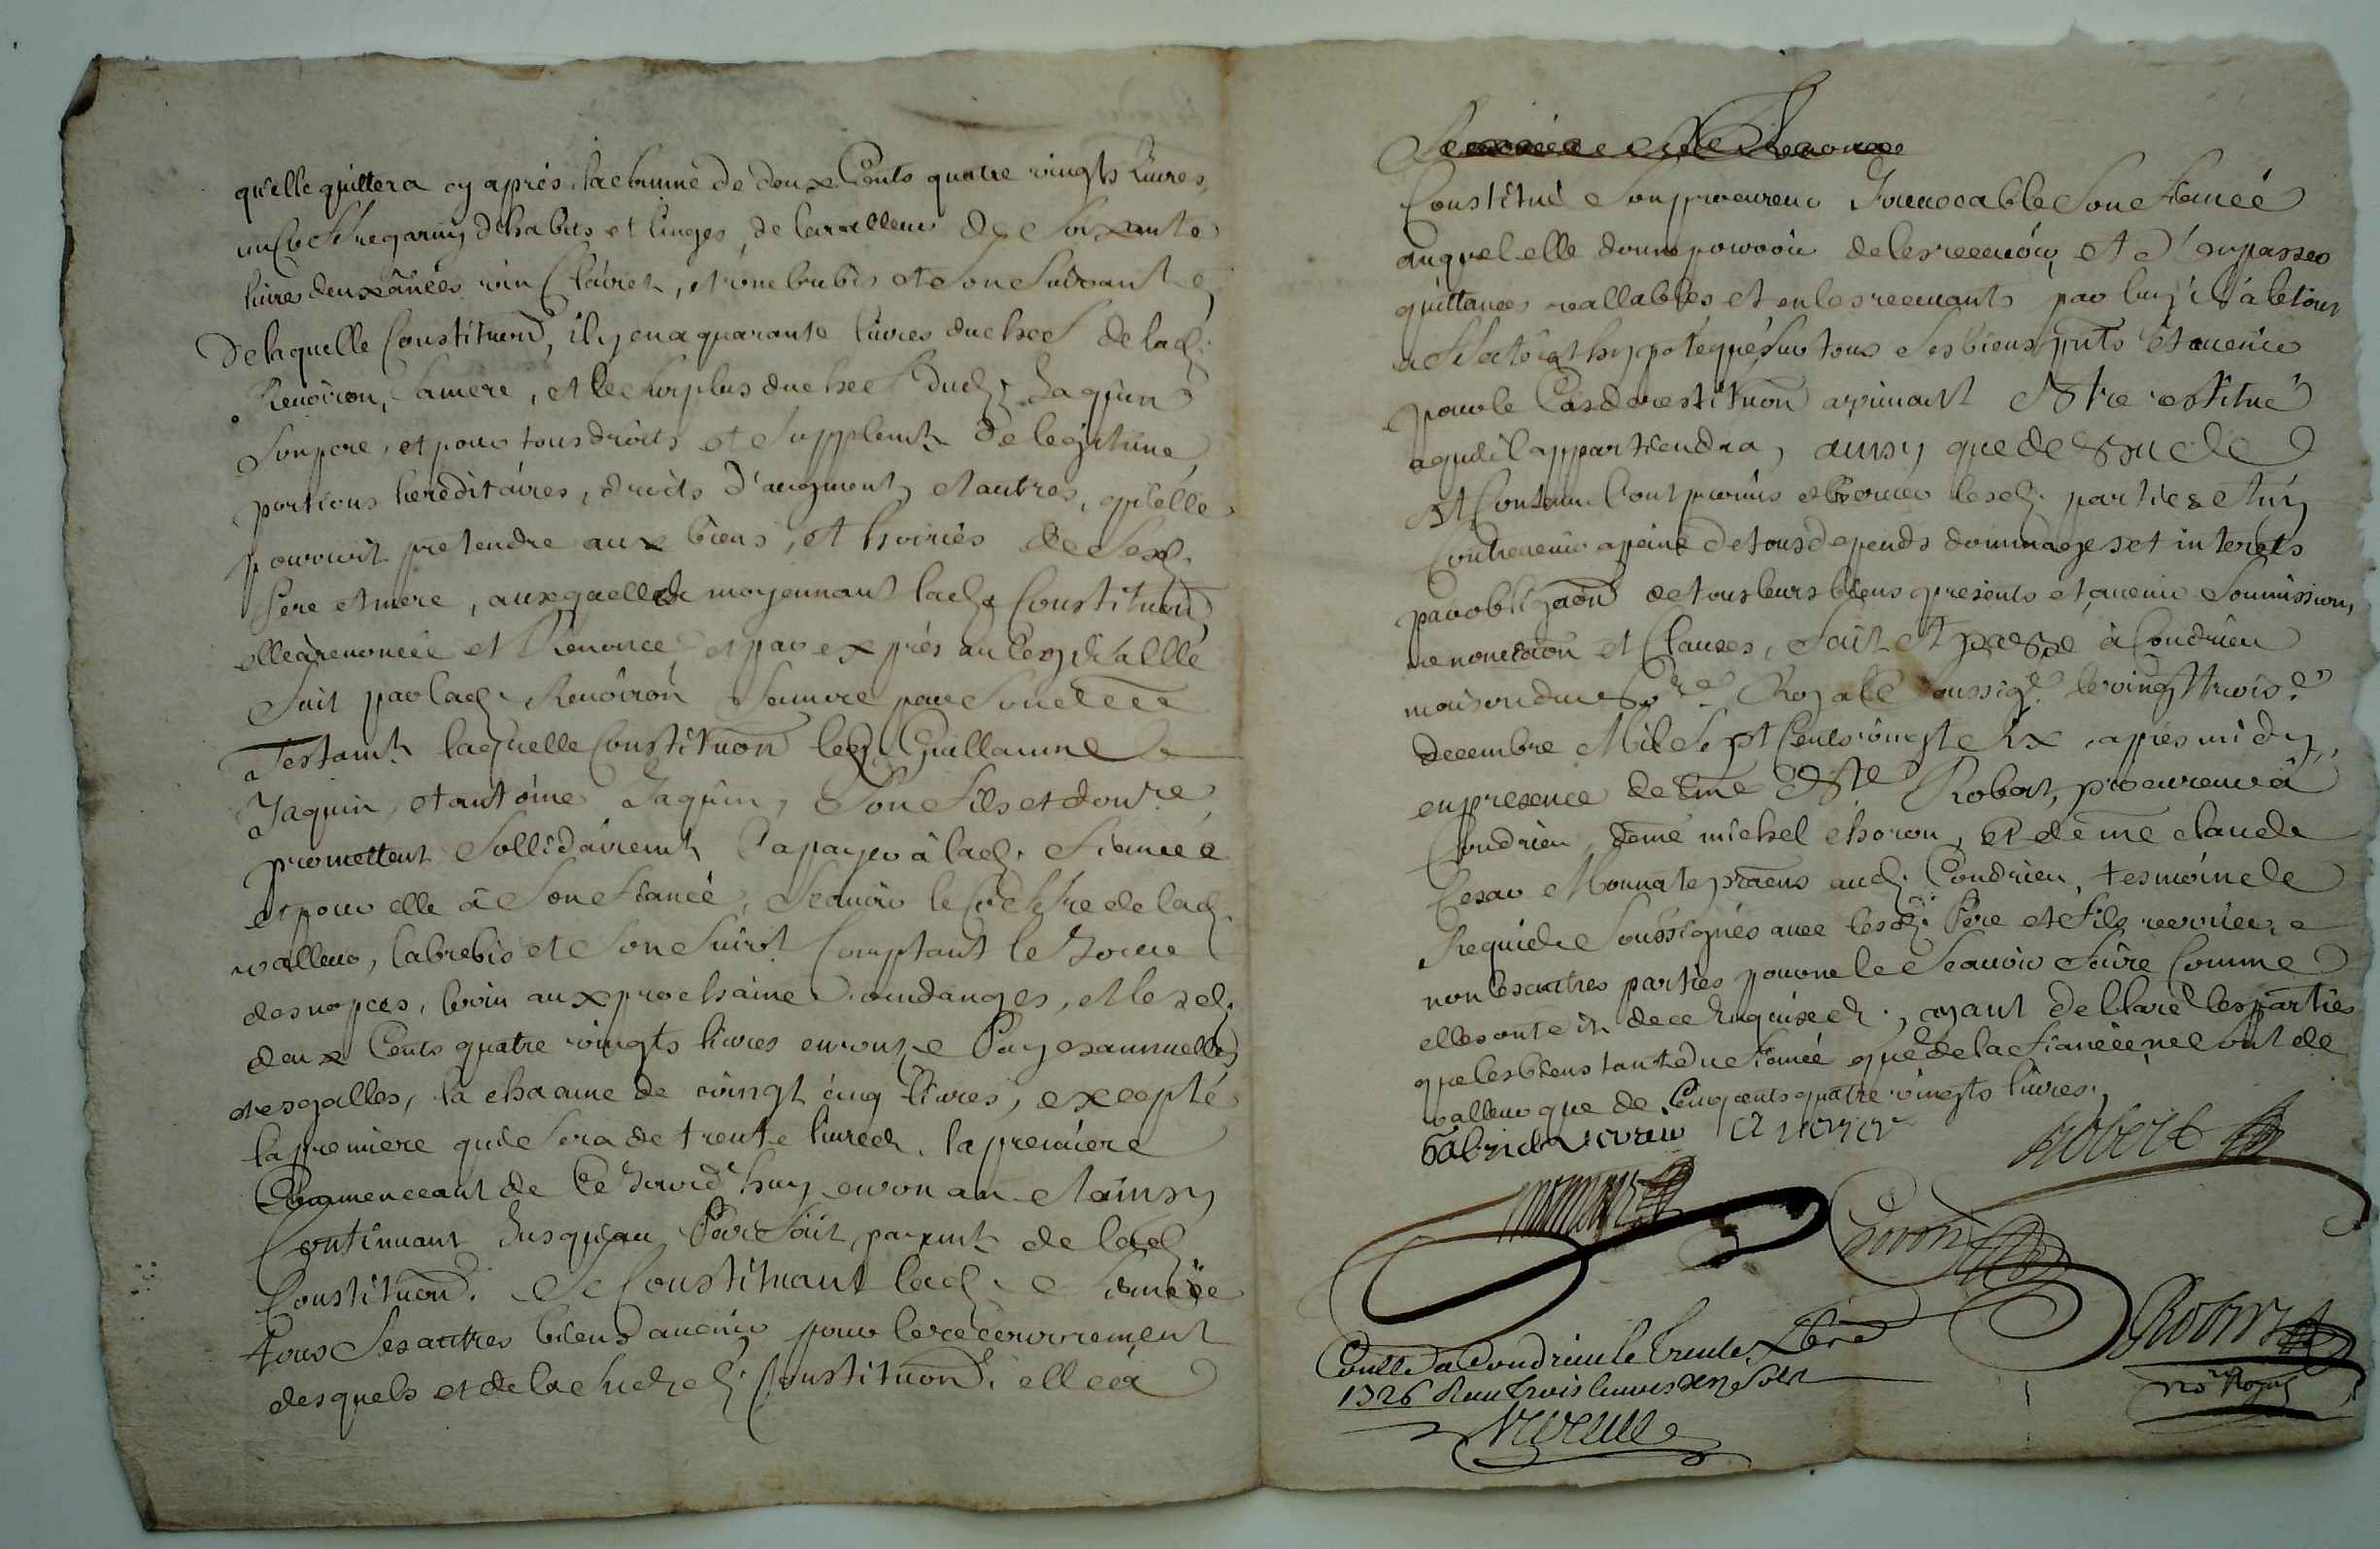 qu'elle quittera cy aprés, la somme de deux Cents quatre vingts Livres,
un Coffre garny d'habits et linges, de la valleur de Soixante
livres deux ânées vin Clairet, et une brebis et son Suivant
De laquelle Constituon, il y en a quarante livres du chef de lad.
Renoiron, Sa mere, et le Surplus du chef dud. Jaquin
Son pere, et pour tous droits et Supplemt. de legitime,
portions hereditaires, droits d'augment, et autres, qu'elle
pourroit pretendre aux biens, et hoiries de Sesd.
Pere et mere, auxquelles moyennant lad. Constituon,
elle a renoncée et Renonce, et par exprés au
fait par lad. Renoiron Sa mere par Son
Testamt. laquelle Constituon led. Guillaume
Jaquin, et antoine Jaquin, Son fils et
promettent Sollidairemt. la payer à lad. fiancée
et pour elle à Son fiancé, Scavoir le Coffre de lad.
valleur, la brebis et Son Suivt. Comptant le Jour
des nopces, le vin aux prochaines vendanges, et lesd.
deux Cents quatre vingts livres en onze Payes annuelles
et esgalles, la chacune de vingt cinq livres, excepté
la premiere qui Sera de trente livres. la premiere
Commenceant de Ce Jourd'huy en un an et ainsy
Continuant Jusqu'au Parfait payemt. de lad.
Constituon. Se Constituant lad. fiancée
tous Ses autres biens avenir pour le recouvrement
desquels et de la Susd. Constituon, elle a
Constitué Son procureur Irrevocable Son fiancé
auquel elle donne pouvoir de les recevoir, et d'en passer
quittances vallables et en les recevants par luy il a le tout
et hypotequé Sur tous Ses biens pnts et avenir
pour le Cas de restituon arrivant Etre restitué
a qui il appartiendra, ainsy que de
Et Contenu Cont promis observer lesd. parties et n'y
Contrevenir a peine de tous depends dommages et interets
par obligaon de tous leurs biens presents et avenir Soumissions,
renonciaon et Clauses, fait et passé à Condrieu
maison du Nore Royal Soussigé le vingt trois e
decembre Mil Sept Cents vingt Six aprés midy,
en presence de Robert, procureur à
Condrieu, michel choron, et de claude
Cesar aud. Condrieu, tesmoins
Requis Soussignés avec lesd. Pere et fils
non les autres parties pour ne le Scavoir faire Comme
elles ont dit de ce Enquises, ayant declaré les parties
que les biens tant du fiancé que de la fiancée, ne Sont de
valleur que de Cinq cents quatre vingts livres.
robert
Controllé a Condrieu le trente Xbre
1726 Receu trois livres